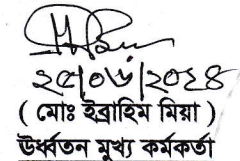 ২৫/০৬/২০২৪
( মোঃ ইব্রাহিম মিয়া )
উর্ধ্বতন মুখ্য কর্মকর্তা